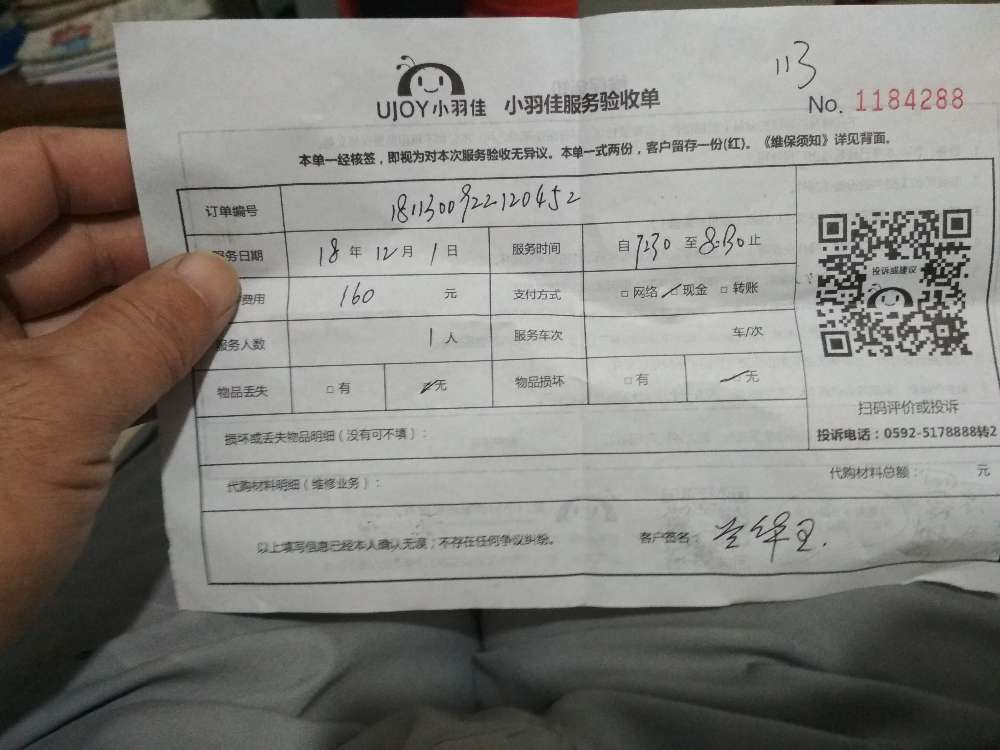 113
UJOY小羽佳 小羽佳服务验收单
No. 1184288
本单一经核签，即视为对本次服务验收无异议。本单一式两份，客户留存一份(红)。《维保须知》详见背面。
订单编号 1811300922120452
服务日期 18 年 12 月 1 日 服务时间 自 7:30 至 8:30 止
费用 160 元 支付方式 □ 网络 □ 现金 □ 转账
服务人数 1 人 服务车次 车/次
物品丢失 □ 有 □ 无 物品损坏 □ 有 □ 无
投诉或建议
扫码评价或投诉
投诉电话：0592-5178888转2
损坏或丢失物品明细（没有可不填）：
代购材料明细（维修业务）： 代购材料总额： 元
以上填写信息已经本人确认无误，不存在任何争议纠纷。 客户签名：